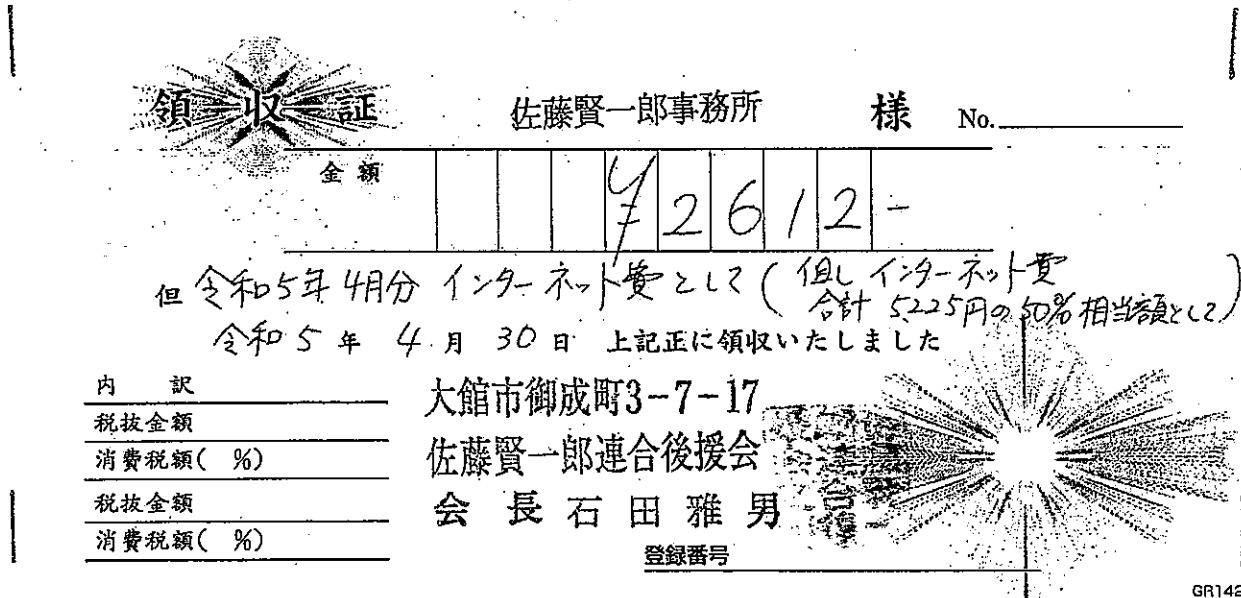 領収証 佐藤賢一郎事務所 様 No.
金額 ¥2612-
但 令和5年4月分 インターネット費として(但し インターネット費
合計 5,225円の50%相当額として)
令和5年4月30日 上記正に領収いたしました
内訳
税抜金額
消費税額( %)
税抜金額
消費税額( %)
大館市御成町3-7-17
佐藤賢一郎連合後援会
会長 石田雅男
登録番号
GR142